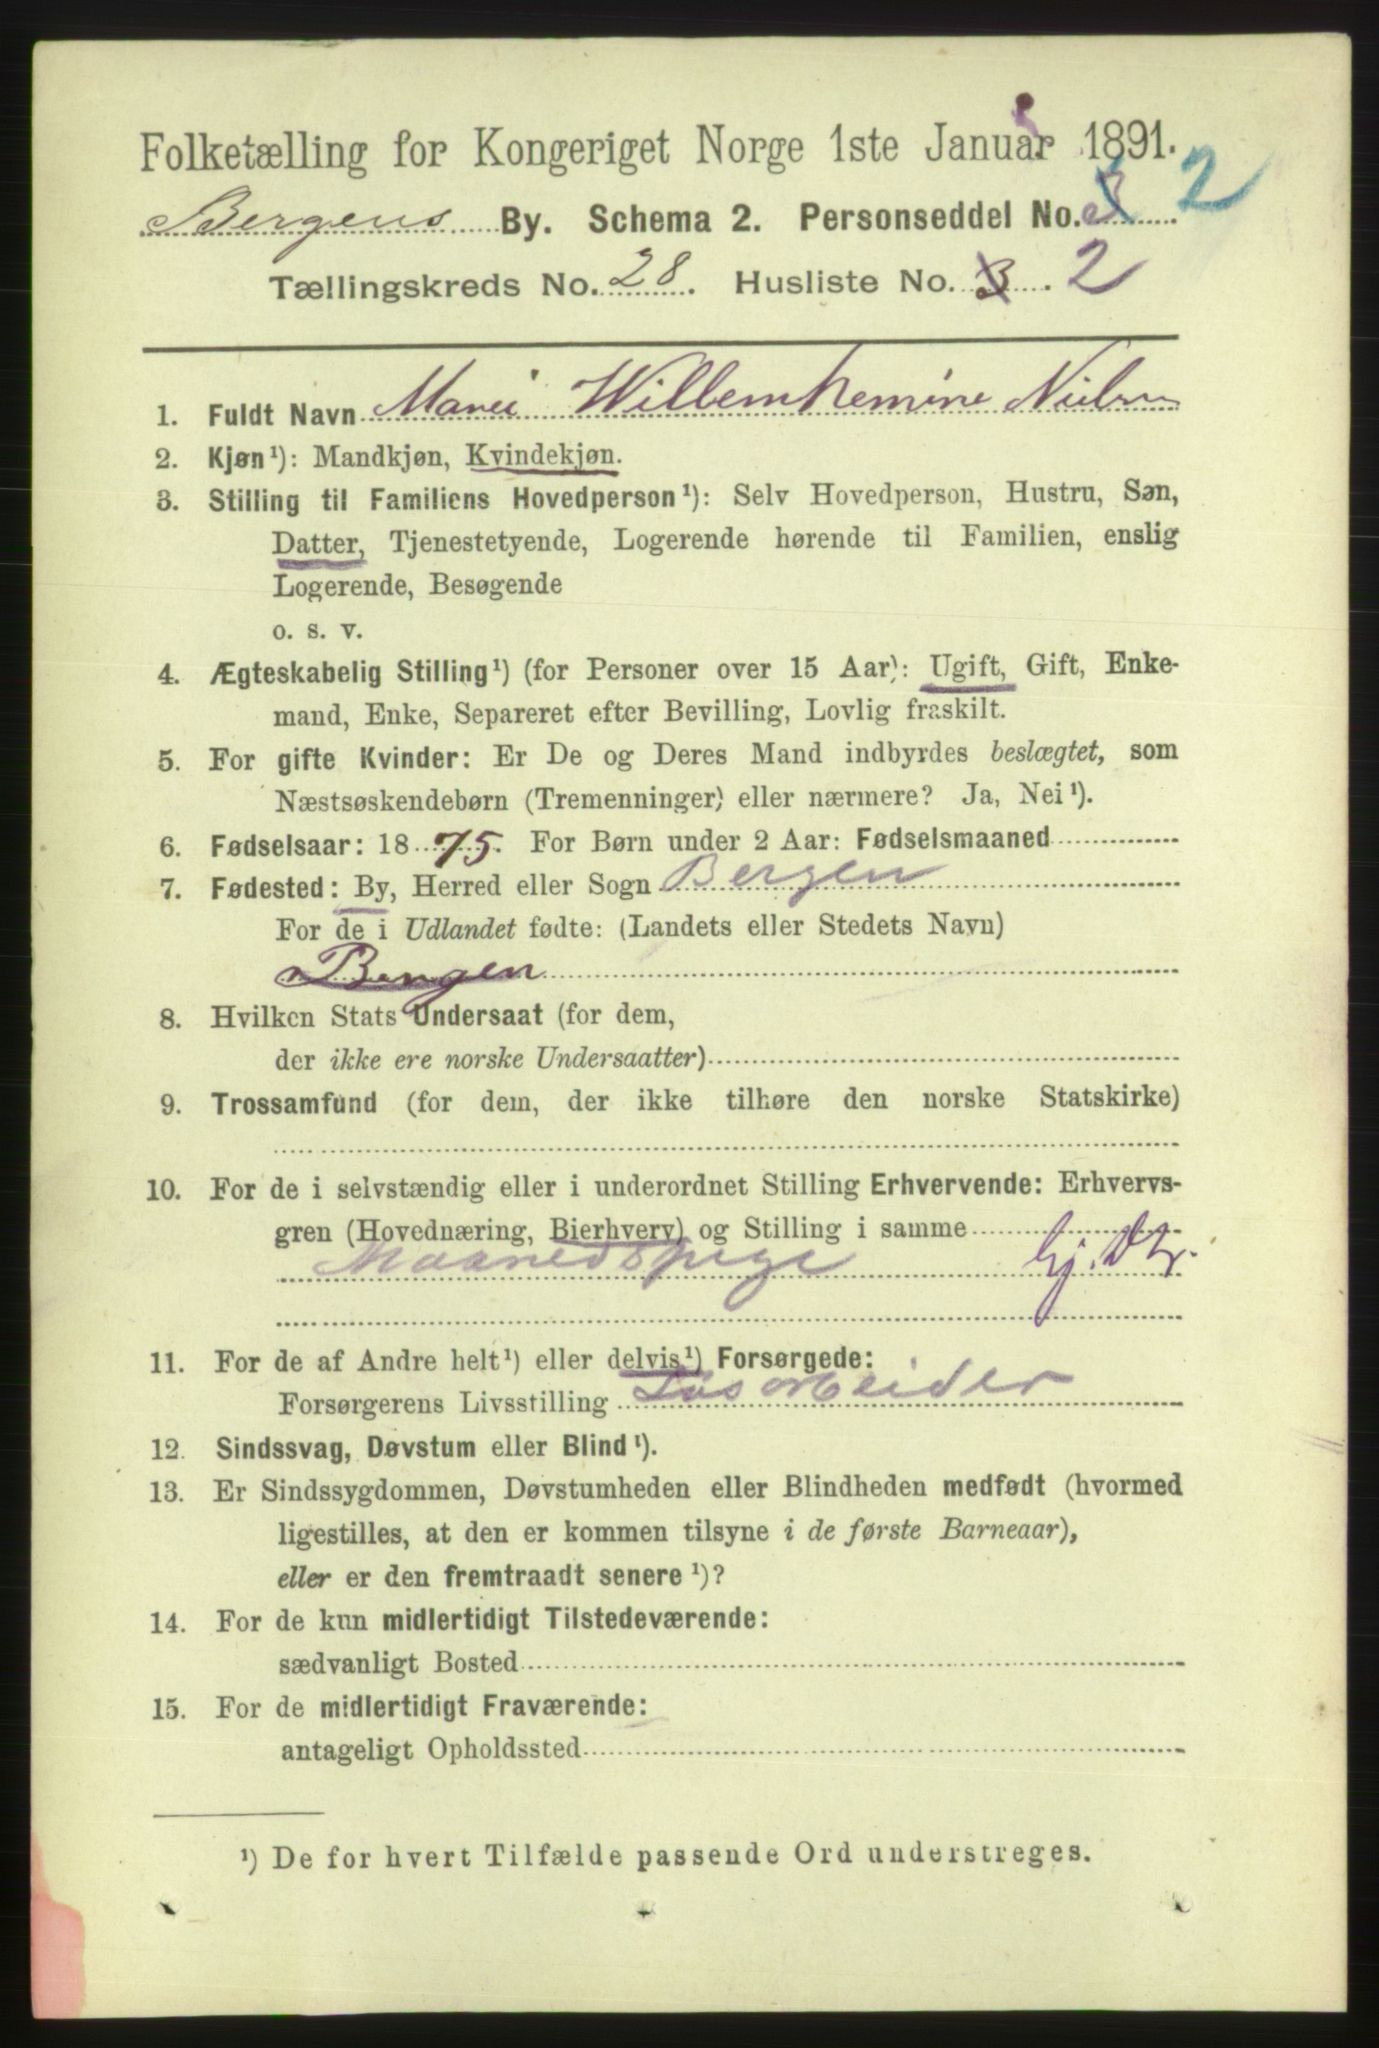 Folketælling for Kongeriget Norge 1ste Januar 1891.
Bergens By. Schema 2. Personseddel No. 3 2
Tællingskreds No. 28. Husliste No. 3. 2
1. Fuldt Navn Marei Willemhemine Nielsen
2. Kjøn¹): Mandkjøn, Kvindekjøn.
3. Stilling til Familiens Hovedperson¹): Selv Hovedperson, Hustru, Søn,
Datter, Tjenestetyende, Logerende hørende til Familien, enslig
Logerende, Besøgende
o. s. v.
4. Ægteskabelig Stilling¹) (for Personer over 15 Aar): Ugift, Gift, Enke-
mand, Enke, Separeret efter Bevilling, Lovlig fraskilt.
5. For gifte Kvinder: Er De og Deres Mand indbyrdes beslægtet, som
Næstsøskendebørn (Tremenninger) eller nærmere? Ja, Nei¹).
6. Fødselsaar: 1875. For Børn under 2 Aar: Fødselsmaaned
7. Fødested: By, Herred eller Sogn Bergen
For de i Udlandet fødte: (Landets eller Stedets Navn)
Bergen
8. Hvilken Stats Undersaat (for dem,
der ikke ere norske Undersaatter)
9. Trossamfund (for dem, der ikke tilhøre den norske Statskirke)
10. For de i selvstændig eller i underordnet Stilling Erhvervende: Erhvervs-
gren (Hovednæring, Bierhverv) og Stilling i samme
Maanedspige
11. For de af Andre helt¹) eller delvis¹) Forsørgede:
Forsørgerens Livsstilling Løsarbeider
12. Sindssvag, Døvstum eller Blind¹).
13. Er Sindssygdommen, Døvstumheden eller Blindheden medfødt (hvormed
ligestilles, at den er kommen tilsyne i de første Barneaar),
eller er den fremtraadt senere¹)?
14. For de kun midlertidigt Tilstedeværende:
sædvanligt Bosted
15. For de midlertidigt Fraværende:
antageligt Opholdssted
¹) De for hvert Tilfælde passende Ord understreges.